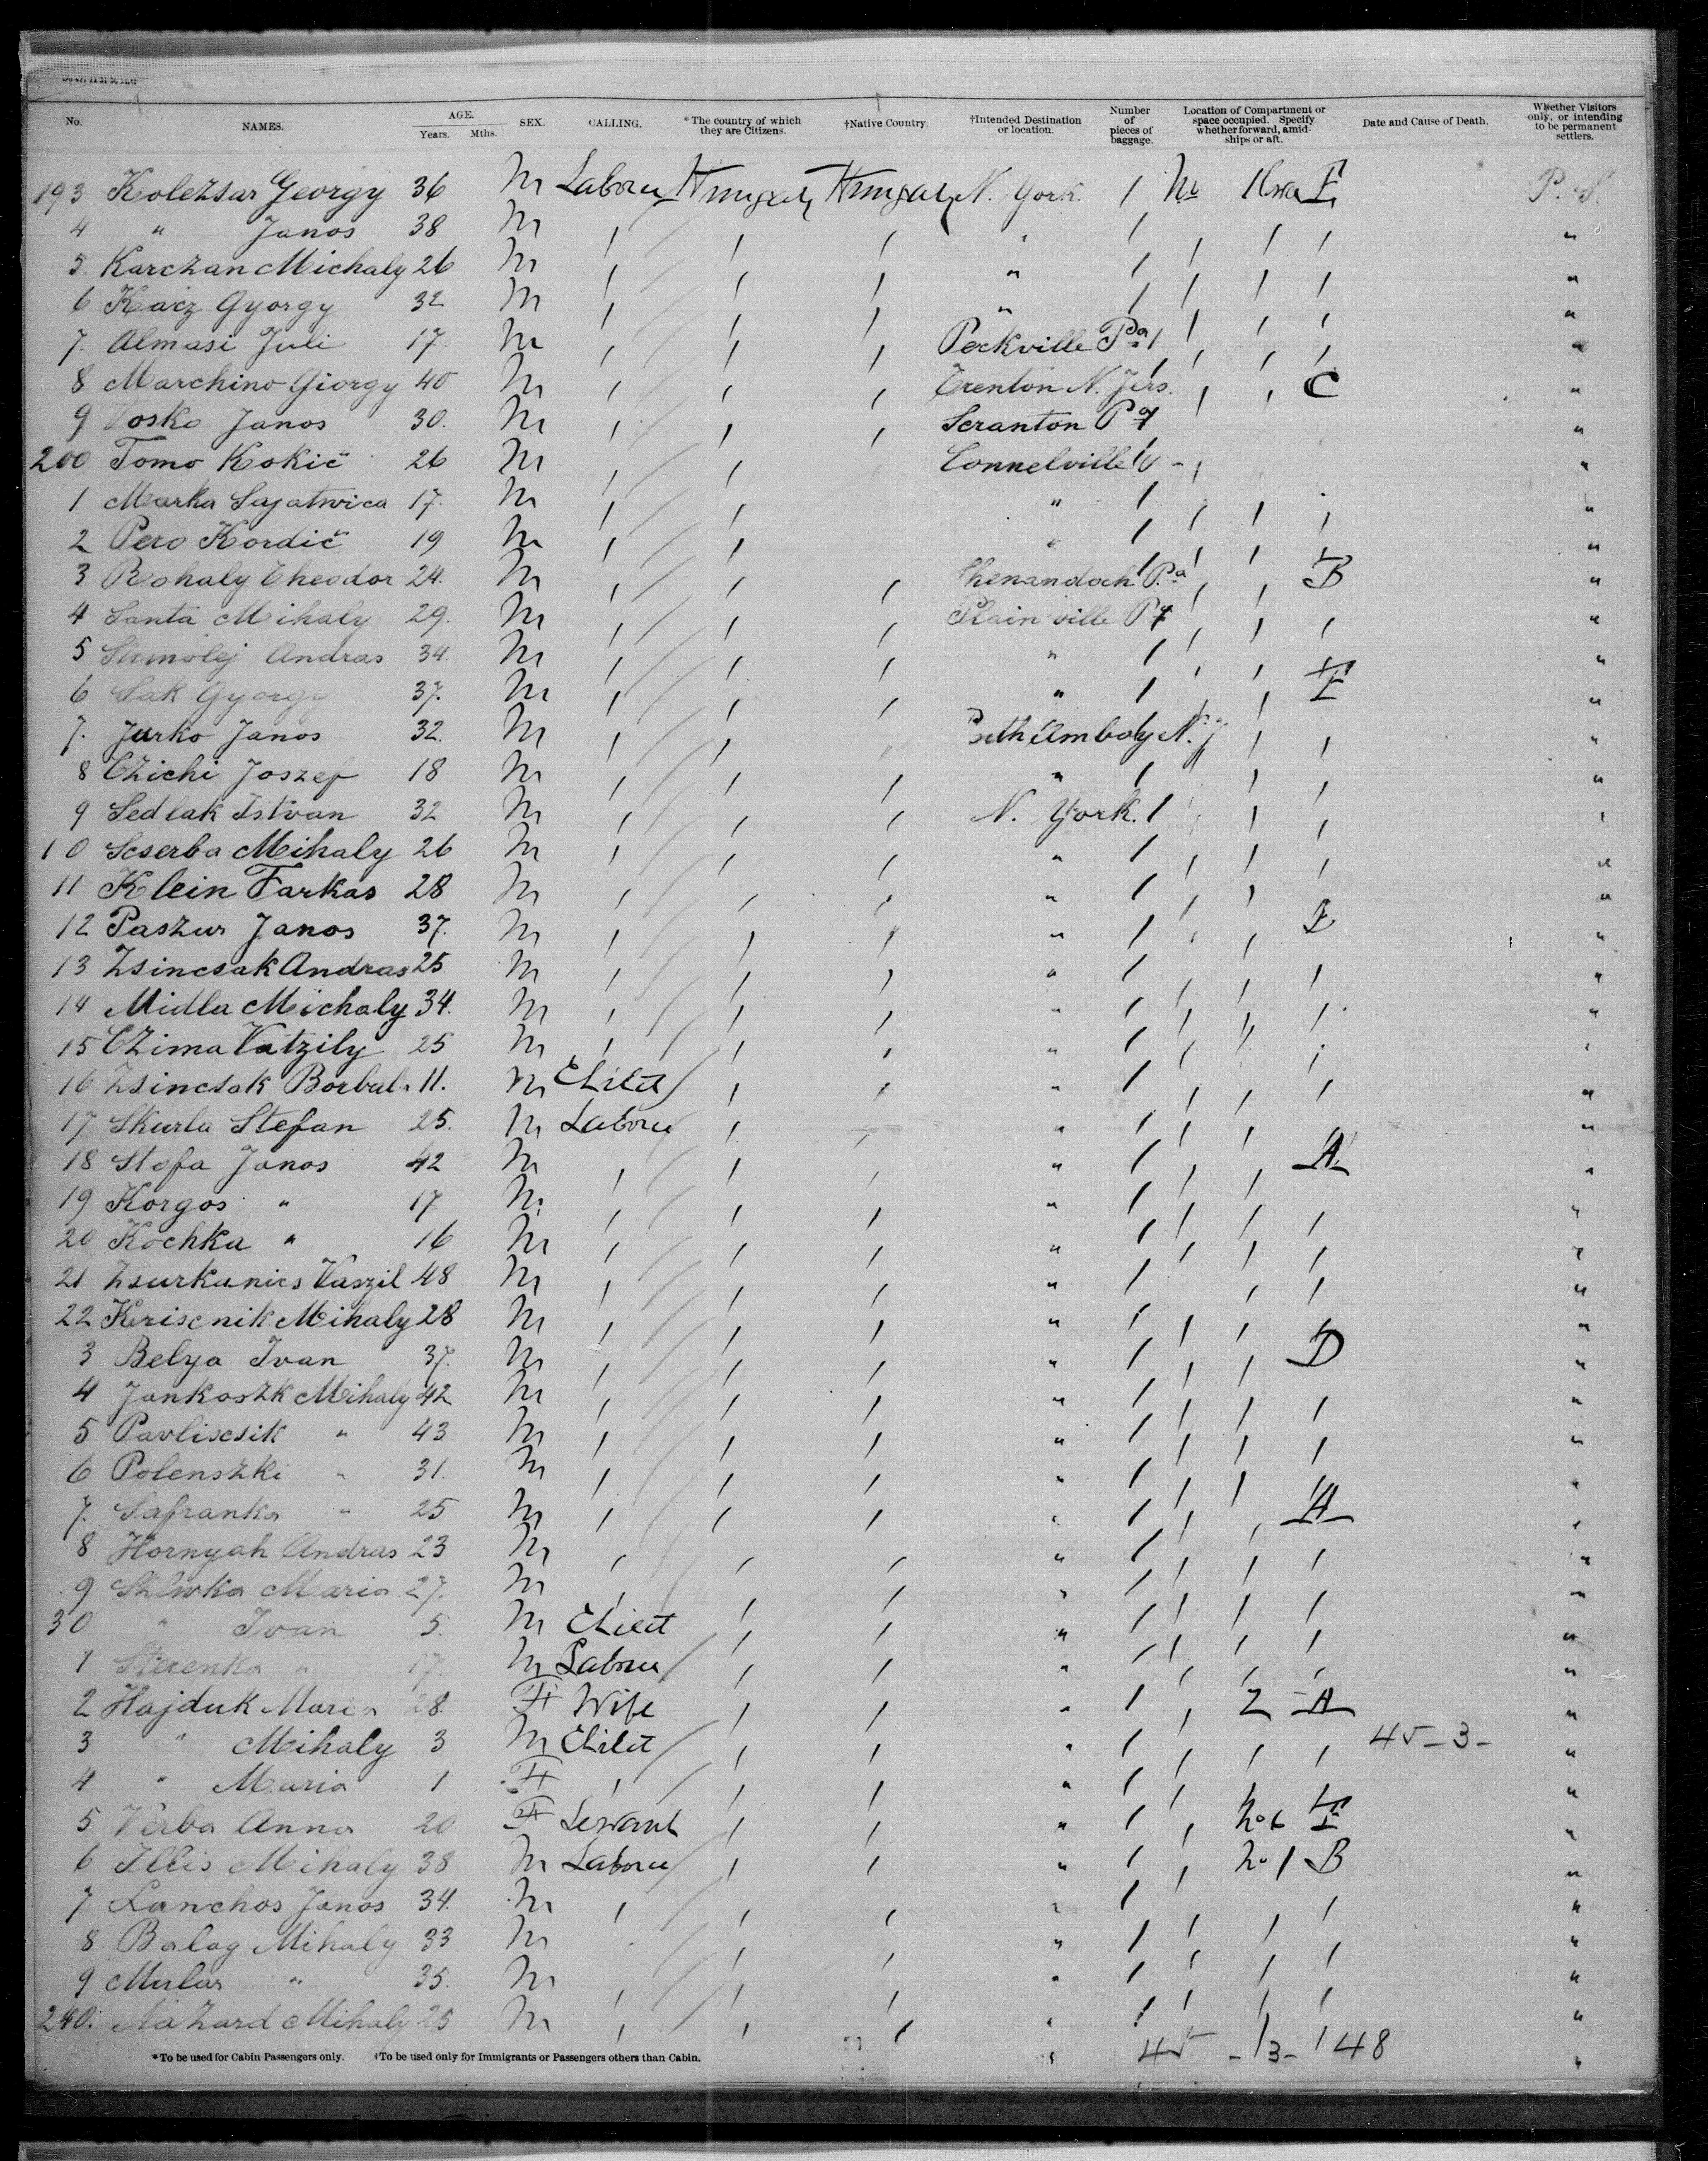 No. NAMES. AGE. Years. Mths. SEX. CALLING. *The country of which they are Citizens. †Native Country. †Intended Destination or location. Number of pieces of baggage. Location of Compartment or space occupied. Specify whether forward, amidships or aft. Date and Cause of Death. Whether Visitors only, or intending to be permanent settlers.
193 Kolezsar Georgy 36 M Labour Hungary Hungary N. York. 1 P. S.
4 " Janos 38 M / / / " / / / / "
5. Karczan Michaly 26 M / / / " / / / / "
6 Kacz Gyorgy 32 M / / / " / / / / "
7. Almasi Juli 17. M / / / Peckville Pa 1 / / / "
8 Marchino Giorgy 40 M / / / Trenton N. Jers. / / C "
9 Vosko Janos 30. M / / / Scranton Pa "
200 Tomo Kokič 26 M / / Connelville "
1 Marka Sajatwica 17. M / / " / / / "
2 Pero Kordič 19 M / / " / / / / "
3 Rohaly Theodor 24. M / / / Shenandoah Pa / / B "
4 Santa Mihaly 29. M / / / Plainville Pa / / / "
5 Simolej Andras 34. M / / / " / / / "
6 Sak Gyorgy 37. M / / / " / / E "
7. Jurko Janos 32. M / / Perth Amboy N. J / / "
8 Czichi Joszef 18 M / / / " / / / "
9 Sedlak Istvan 32 M / / / N. York. 1 / / / "
10 Scserba Mihaly 26 M / / / " / / / / "
11 Klein Farkas 28 M / / / " / / / "
12 Paszur Janos 37. M / / / " / / / E "
13 Zsincsak Andras 25 M / / / " / / / / "
14 Midla Michaly 34. M / / / " / / / / "
15 Czima Vatzily 25 M / / / " / / / "
16 Zsincsak Borbul 11. M Child / / " / / / / "
17 Skurla Stefan 25. M Labour / " / / / "
18 Stefa Janos 42 M / / / " / / / A "
19 Korgos " 17 M / / / " / / / / "
20 Kochka " 16 M / / / " / / / / "
21 Zsurkanics Vaszil 48 M / / / " / / / "
22 Keriscnik Mihaly 28 M / / / " / / / / "
3 Belya Ivan 37. M / / / " / / / D "
4 Jankoszk Mihaly 42 M / / / " / / / / "
5 Pavliscsik " 43 M / / / " / / / / "
6 Polenszki " 31. M / / / " / / / / "
7. Safranko " 25 M / / / " / / / A "
8 Hornyah Andras 23 M / / / " / / / / "
9 Maria 27. M / / / " / / / / "
30 " Ivan 5. M Child / / " / / / / "
1 " 17. M Labour / / " / / / / "
2 Hajduk Maria 28. F Wife / / " 1 / 2 A "
3 " Mihaly 3 M Child / / " / / / / 45 - 3 - "
4 " Maria 1 F / / / " / / "
5 Verba Anna 20 F Servant / / " 1 / No 6 E "
6 Illis Mihaly 38 M Labour / / " 1 / No 1 B "
7 Lanchos Janos 34. M / / / " / / / / "
8 Balog Mihaly 33 M / / " / / / / "
9 Mular " 35. M / / / " / / / / "
240. Nazard Mihaly 25 M / / / " / / / / "
45 - 3 - 48
*To be used for Cabin Passengers only. †To be used only for Immigrants or Passengers others than Cabin.